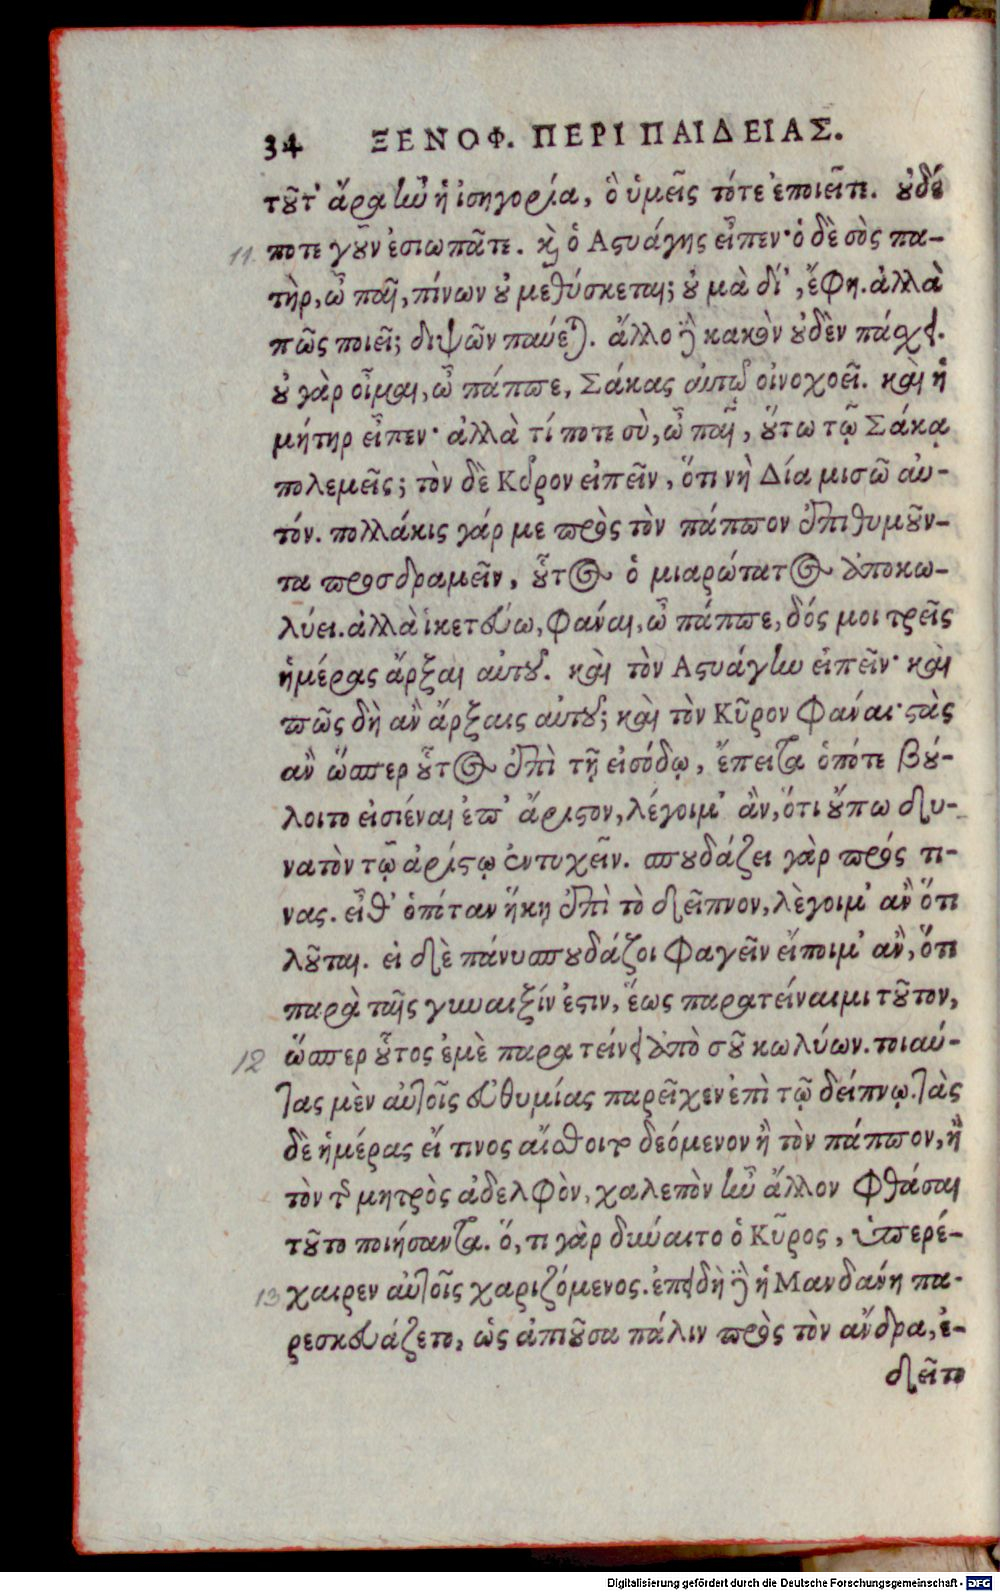 34 ΞΕΝΟΦ. ΠΕΡΙ ΠΑΙΔΕΙΑΣ.
τοῦτ' ἄρα ἦν ἡ ἰσηγορία, ὃ ὑμεῖς τότε ἐποιεῖτε. οὐδέ
11. ποτε γοῦν ἐσιωπᾶτε. καὶ ὁ Αστυάγης εἶπεν· ὁ δὲ σὸς πα-
τὴρ, ὦ παῖ, πίνων οὐ μεθύσκεται; οὐ μὰ δί', ἔφη. ἀλλὰ
πῶς ποιεῖ; διψῶν παύεται. ἄλλο δὲ κακὸν οὐδὲν πάσχει.
οὐ γὰρ οἶμαι, ὦ πάππε, Σάκας αὐτῷ οἰνοχοεῖ. καὶ ἡ
μήτηρ εἶπεν· ἀλλὰ τί ποτε σὺ, ὦ παῖ, οὕτω τῷ Σάκᾳ
πολεμεῖς; τὸν δὲ Κῦρον εἰπεῖν, ὅτι νὴ Δία μισῶ αὐ-
τόν. πολλάκις γάρ με πρὸς τὸν πάππον ἐπιθυμοῦν-
τα προσδραμεῖν, οὗτος ὁ μιαρώτατος ἀποκω-
λύει. ἀλλὰ ἱκετεύω, φάναι, ὦ πάππε, δός μοι τρεῖς
ἡμέρας ἄρξαι αὐτοῦ. καὶ τὸν Αστυάγην εἰπεῖν· καὶ
πῶς δὴ ἂν ἄρξαις αὐτοῦ; καὶ τὸν Κῦρον φάναι· στὰς
ἂν ὥσπερ οὗτος ἐπὶ τῇ εἰσόδῳ, ἔπειτα ὁπότε βού-
λοιτο εἰσιέναι ἐπ' ἄριστον, λέγοιμ' ἂν, ὅτι οὔπω δυ-
νατὸν τῷ ἀρίστῳ ἐντυχεῖν. σπουδάζει γὰρ πρός τι-
νας. εἶθ' ὁπόταν ἥκῃ ἐπὶ τὸ δεῖπνον, λὲγοιμ' ἂν ὅτι
λοῦται. εἰ δὲ πάνυ σπουδάζοι φαγεῖν εἴποιμ' ἂν, ὅτι
παρὰ ταῖς γυναιξίν ἐστιν, ἕως παρατείναιμι τοῦτον,
12 ὥσπερ οὗτος ἐμὲ παρατείνει ἀπὸ σοῦ κωλύων. τοιαύ-
τας μὲν αὐτοῖς εὐθυμίας παρεῖχεν ἐπὶ τῷ δείπνῳ. τὰς
δὲ ἡμέρας εἴ τινος αἴσθοιτο δεόμενον ἢ τὸν πάππον, ἢ
τὸν τῆς μητρὸς ἀδελφὸν, χαλεπὸν ἦν ἄλλον φθάσαι
τοῦτο ποιήσαντα. ὅ, τι γὰρ δύναιτο ὁ Κῦρος, ὑπερέ-
13 χαιρεν αὐτοῖς χαριζόμενος. ἐπειδὴ δὲ ἡ Μανδάνη πα-
ρεσκευάζετο, ὡς ἀπιοῦσα πάλιν πρὸς τὸν ἄνδρα, ἐ-
δεῖτο
Digitalisierung gefördert durch die Deutsche Forschungsgemeinschaft - DFG